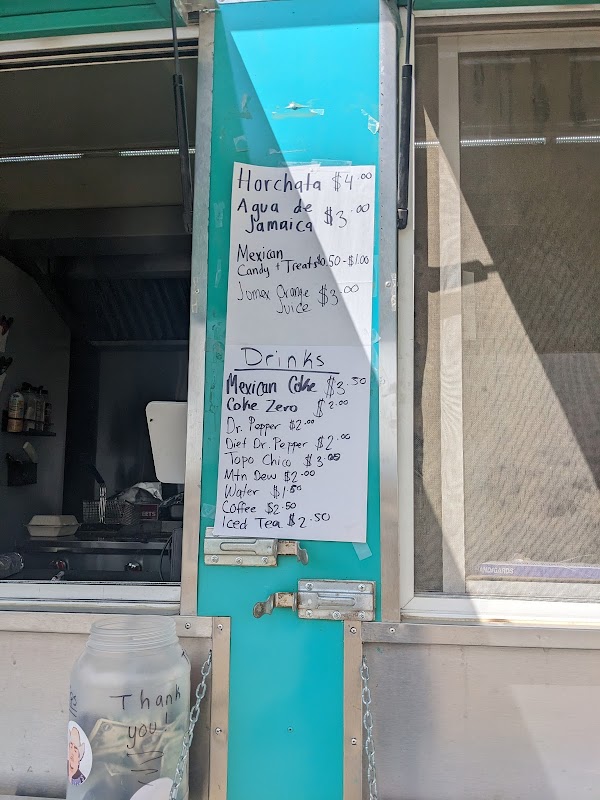 Horchata $4.00
Agua de
Jamaica $3.00
Mexican
Candy + Treats $0.50-$1.00
Jumex Orange
Juice $3.00
Drinks
Mexican Coke $3.50
Coke Zero $2.00
Dr. Pepper $2.00
Diet Dr. Pepper $2.00
Topo Chico $3.00
Mtn Dew $2.00
Water $1.50
Coffee $2.50
Iced Tea $2.50
Thank
you!